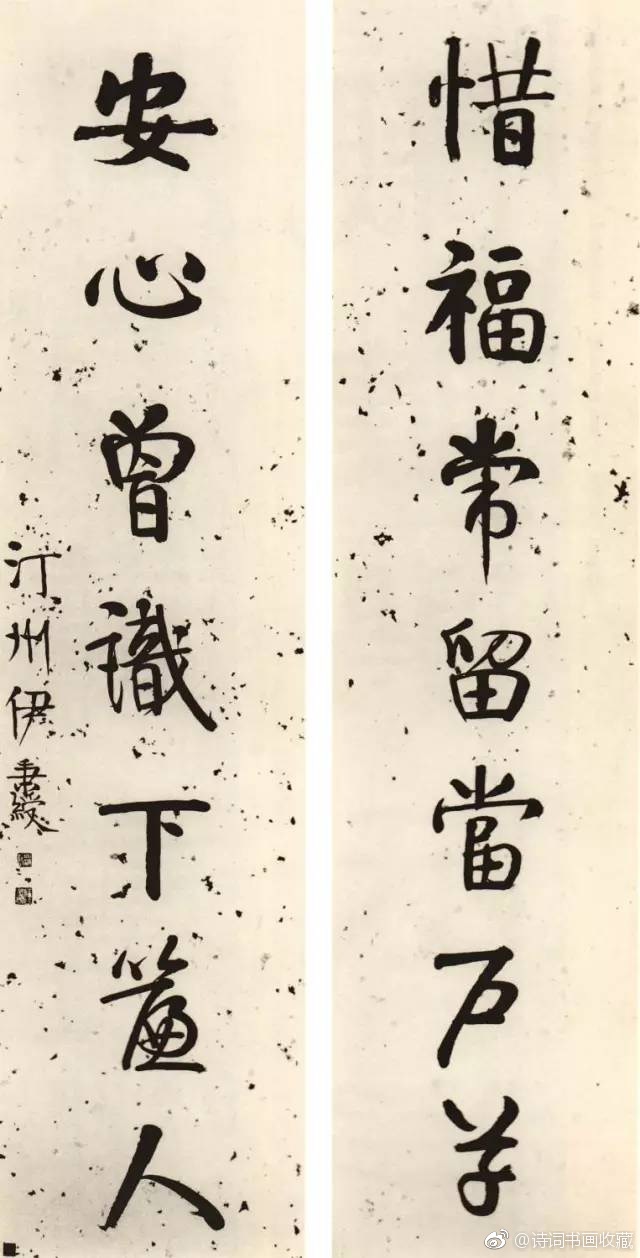 惜福常留當户草
安心曾識下簾人
汀州伊秉綬
@诗词书画收藏